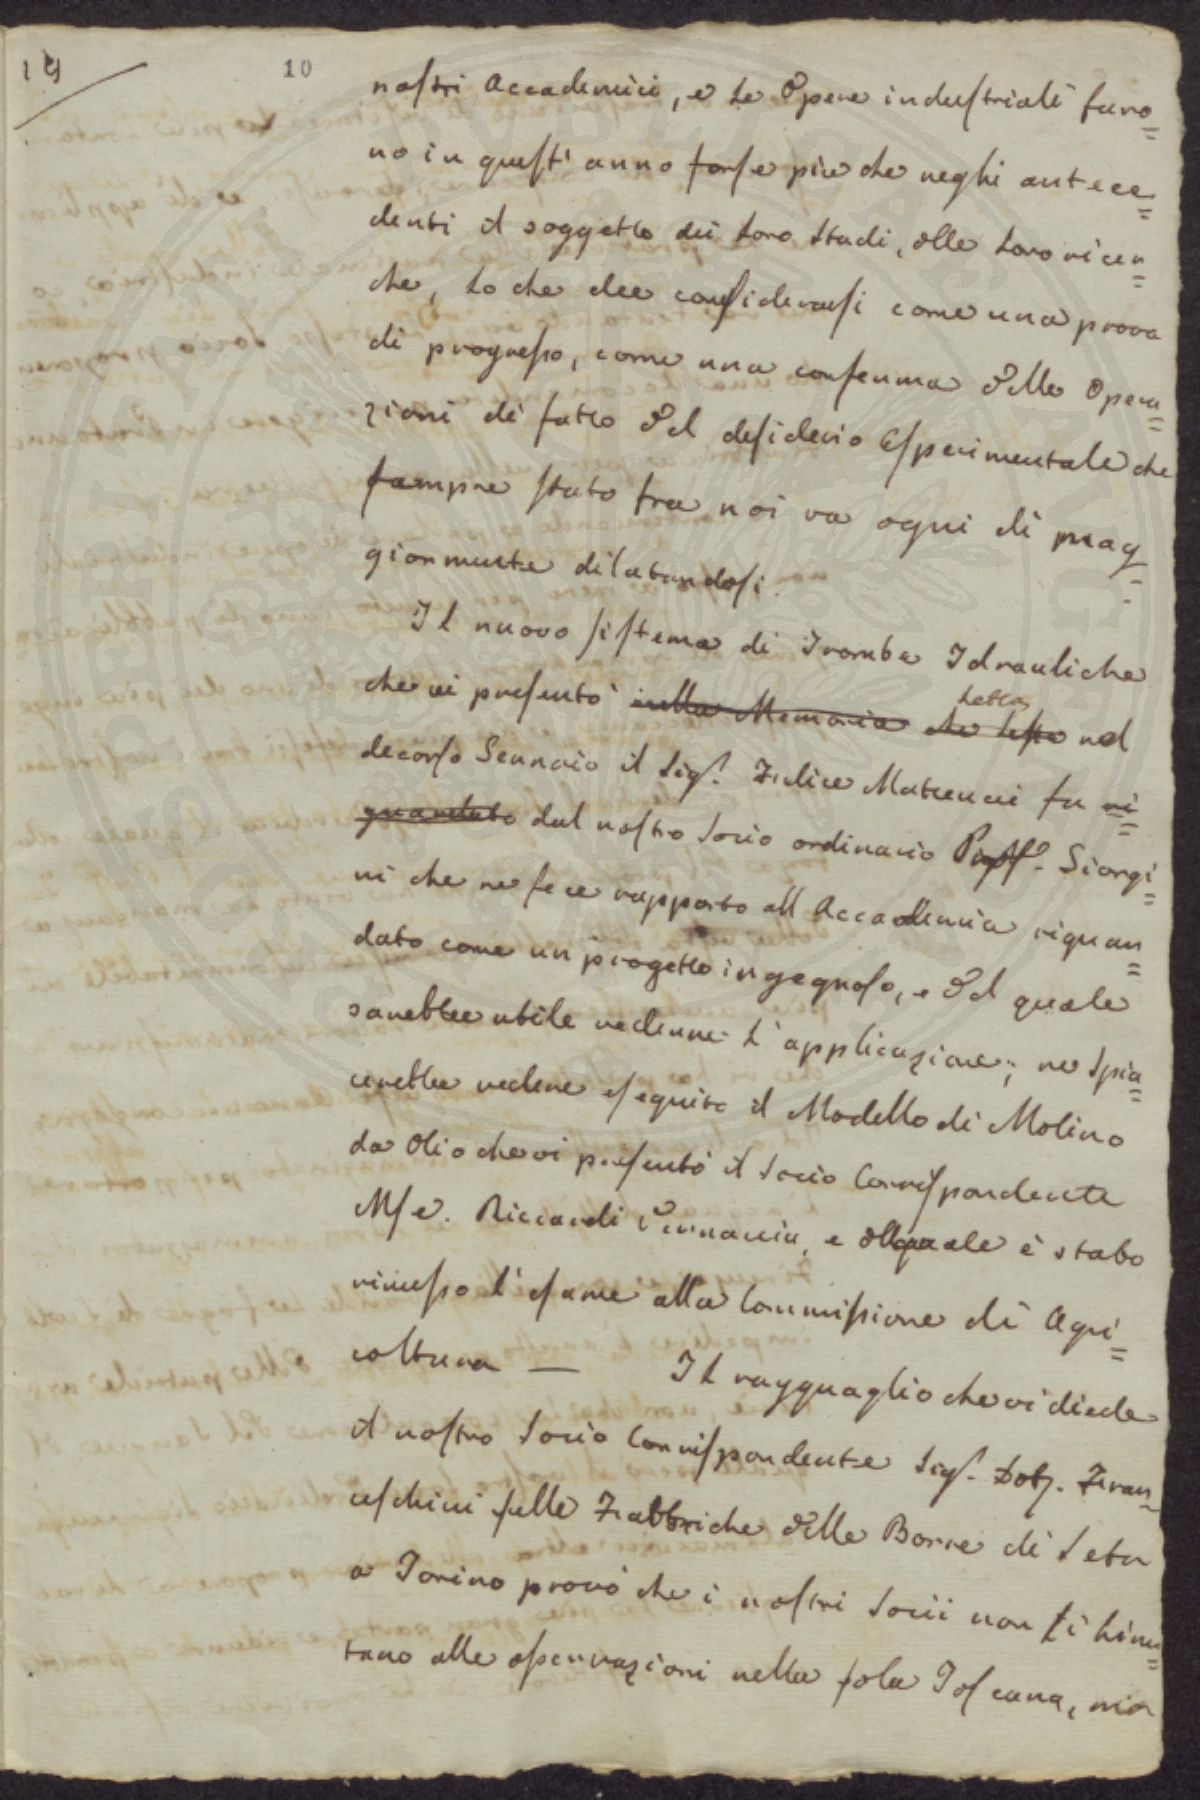 19 10
nostri Accademici, e le Opere industriali furo=
no in quest'anno forse più che neghi antece=
denti il soggetto dei loro studi, delle loro ricer=
che, lo che dee considerarsi come una prova
di progresso, come una conferma delle Opera=
zioni di fatto del desiderio Esperimentale che
sempre stato fra noi va ogni dì mag=
giormente dilatandosi.
Il nuovo sistema di Trombe Idrauliche
che vi presentò nella Memoria che lesse letta nel
decorso Gennaio il Sig. Felice Matteucci fu ri=
guardato dal nostro Socio ordinario Proff. Giorgi=
ni che ne fece rapporto all Accademia riguar=
dato come un progetto ingegnoso, e del quale
sarebbe utile vederne l'applicazione; ne spia=
cerebbe vedere eseguito il Modello di Molino
da Olio che vi presentò il Socio Corrispondente
Mse. Riccardi Vernaccia, e del quale è stato
rimesso l'esame alla Commissione di Agri=
coltura — Il ragguaglio che vi diede
il nostro Socio Corrispondente Sig. Dott. Fran=
ceschini sulle Fabbriche delle Borre di Seta
a Torino provò che i nostri Socii non si limi=
tano alle osservazioni nella sola Toscana, ma